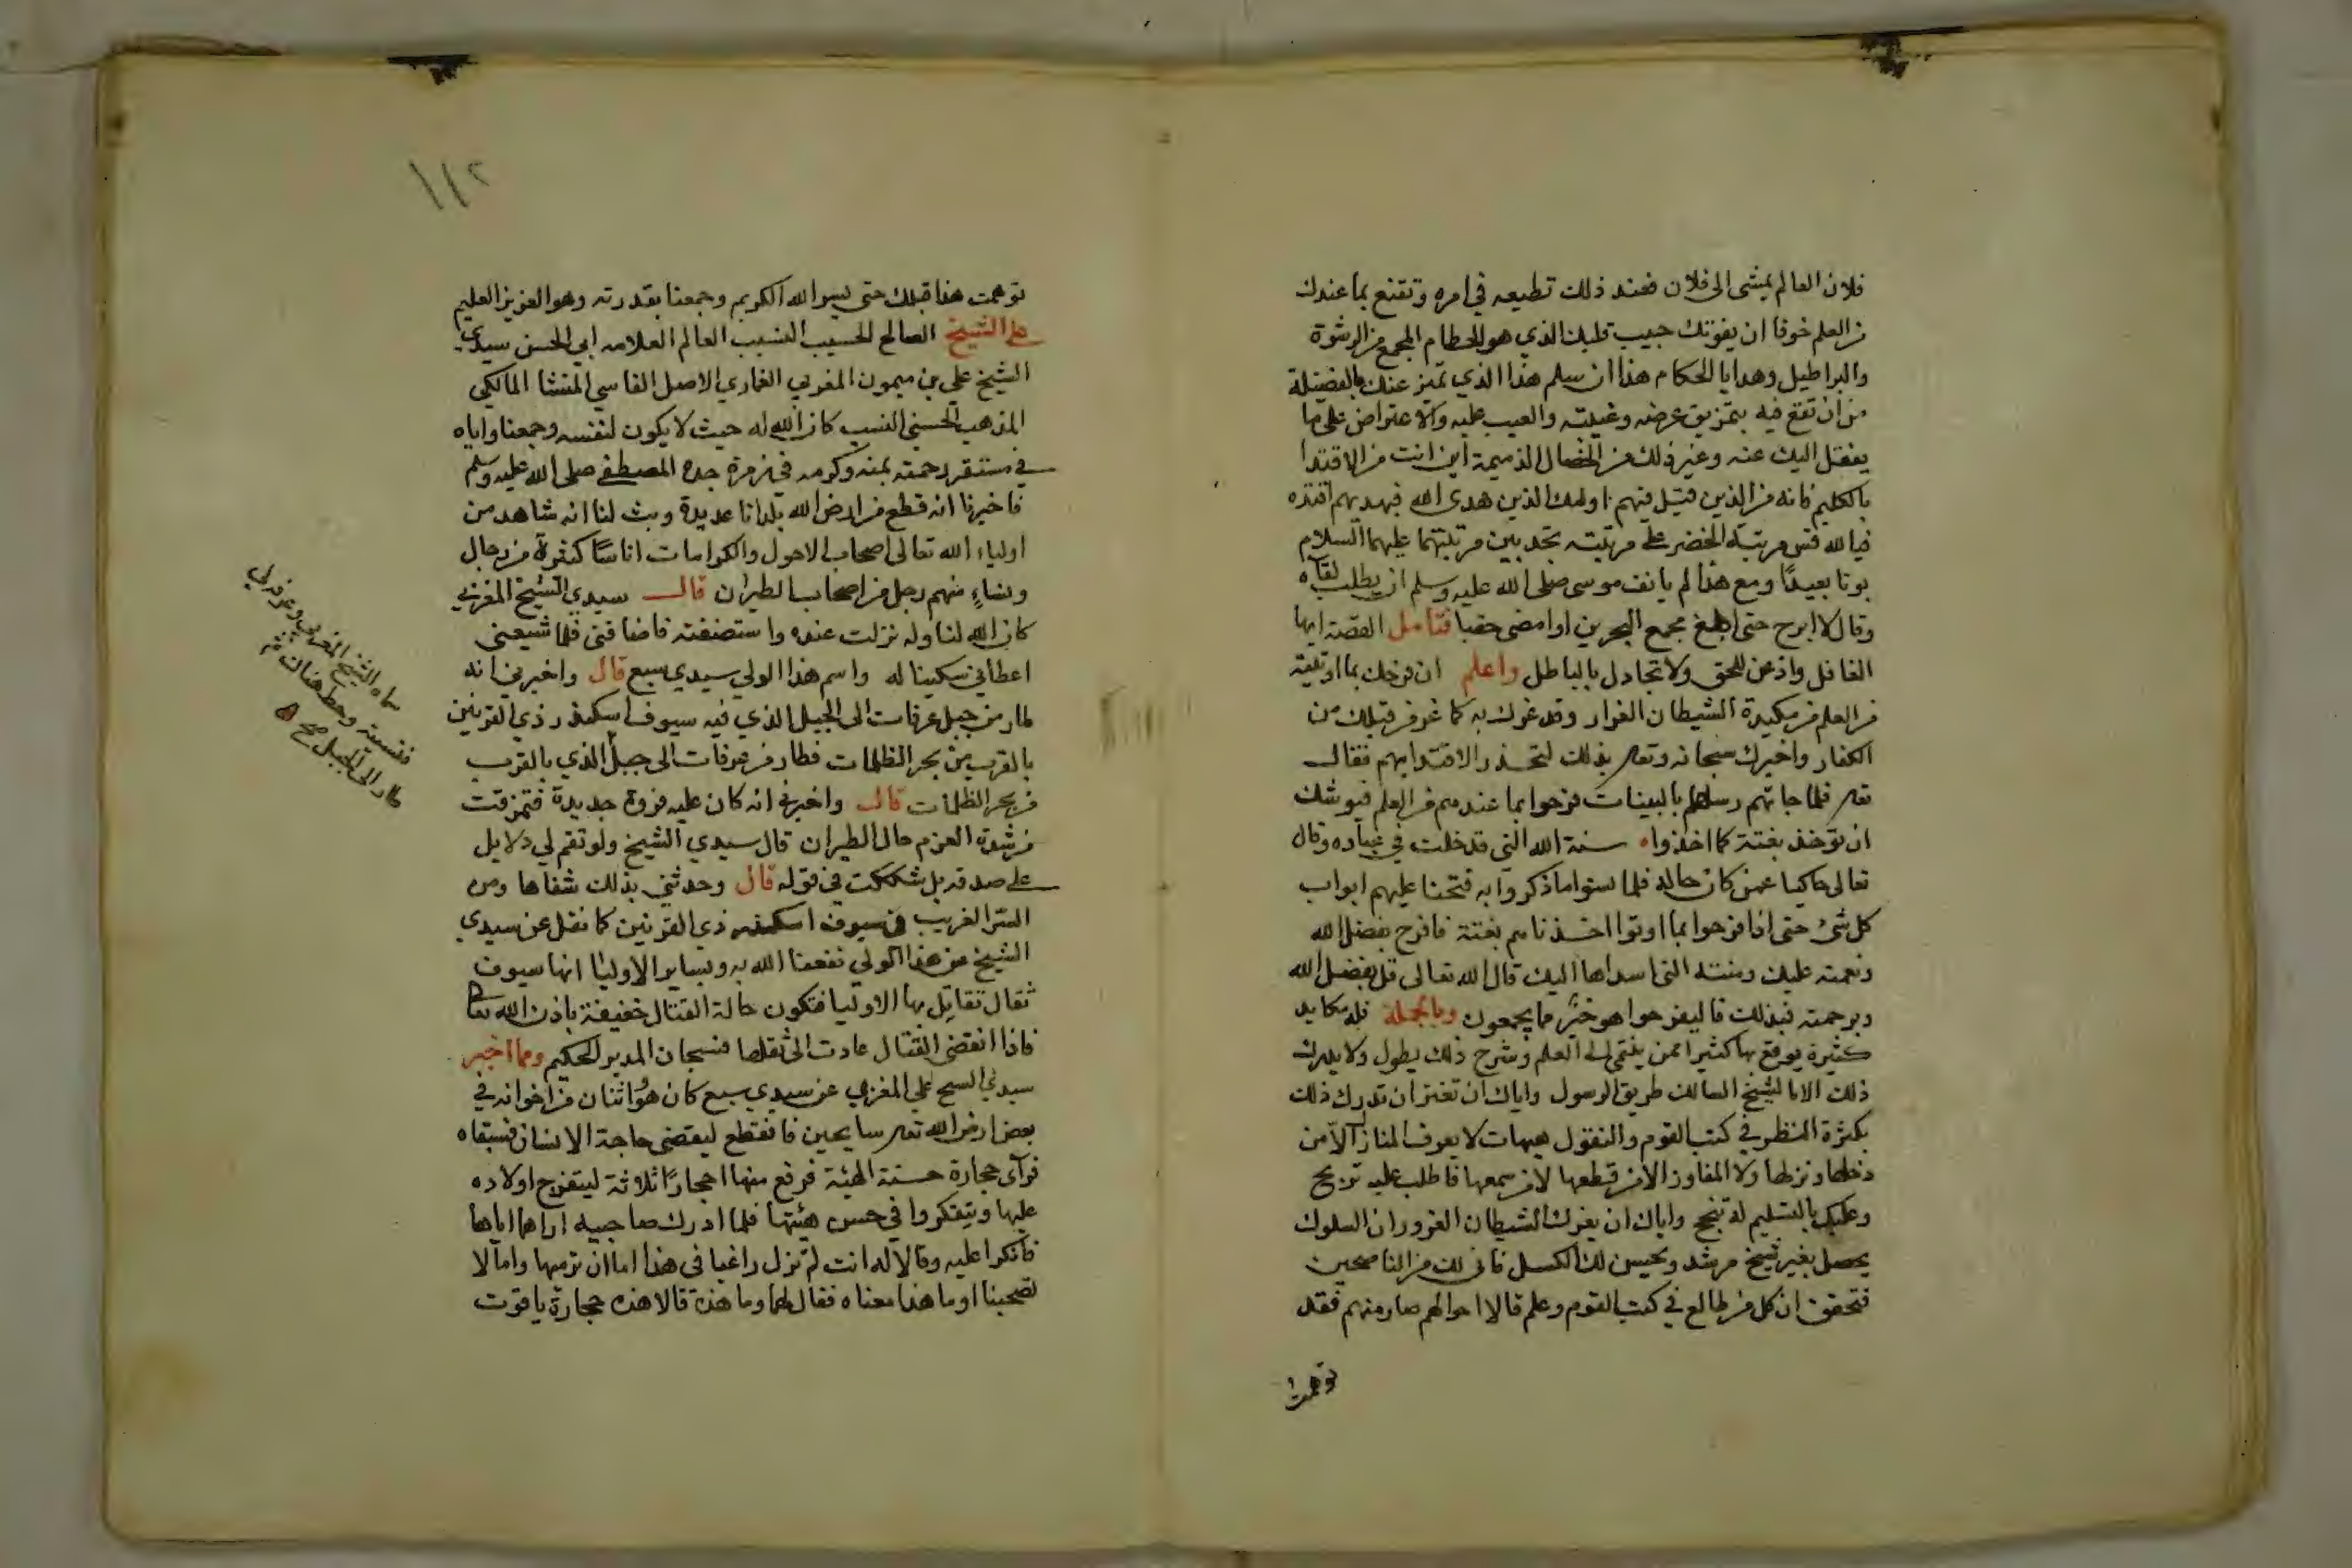 فلان العالم يمشى الى فلان فعند ذلك تطيعه في امره وتقنع بما عندك
من العلم خوفا ان يفوتك حبيب قلبك الذي هو الحطام المجمع من الرشوة
والبراطيل وهدايا الحكام هذا ان سلم هذا الذي تميز عنك بالفضيلة
من ان تقع فيه بتمزيق عرضه وغيبته والعيب عليه والاعتراض على ما
ينقل اليك عنه وغير ذلك من الخصال الذميمة اين انت من الاقتدا
بالكليم فانه من الذين قيل فيهم اولئك الذين هدى الله فبهديهم اقتده
فيالله قس مرتبة الخضر على مرتبته تجد بين مرتبتهما عليهما السلام
بونا بعيدًا ومع هذا لم يانف موسى صلى الله عليه وسلم ان يطلب لقاه
وقال لا ابرح حتى ابلغ مجمع البحرين او امضى حقبا فتامل القصة ايها
الغافل واذعن للحق ولا تجادل بالباطل واعلم ان فرحك بما اوتيته
من العلم من مكيدة الشيطان الغرار وقد غرك به كما غر من قبلك من
الكفار واخبرك سبحانه وتعالى بذلك لتحذر الاقتدا بهم فقال
تعالى فلما جاتهم رسلهم بالبينات فرحوا بما عندهم من العلم فيوشك
ان توخذ بغتة كما اخذوا ه سنة الله التي قد خلت في عباده وقال
تعالى حاكيا عمن كان حاله فلما نسوا ما ذكروا به فتحنا عليهم ابواب
كل شئ حتى اذا فرحوا بما اوتوا اخذناهم بغتة فافرح بفضل الله
ونعمته عليك ومنته التي اسداها اليك قال الله تعالى قل بفضل الله
وبرحمته فبذلك فاليفرحوا هو خير مما يجمعون وبالجملة فله مكايد
كثيرة يوقع بها كثيرا ممن ينتمى الى العلم وشرح ذلك يطول ولا يدرك
ذلك الا بالشيخ السالك طريق الرسول واياك ان تغتر ان تدرك ذلك
بكثرة النظر في كتب القوم والنقول هيهات لا يعرف المنازل الا من
دخلها ونزلها ولا المفاوز الا من قطعها لا من سمعها فاطلب عليه تربح
وعليك بالتسليم له تنجح واياك ان يغرك الشيطان الغرور ان السلوك
يحصل بغير شيخ مرشد ويحسن لك الكسل فانى لك من الناصحين
فتحقق ان كل من طالع في كتب القوم وعلم قالا احوالهم صار منهم فقد
توهمت
١١٢
توهمت هذا قبلك حتى يسر الله الكريم وجمعنا بقدرته وهو العزيز العليم
على الشيخ الصالح الحسيب النسيب العالم العلامه ابي الحسن سيدي
الشيخ علي بن ميمون المغربي الغماري الاصل الفاسي المنشا المالكي
المذهب الحسني النسب كان الله له حيث لا يكون لنفسه وجمعنا واياه
في مستقر رحمته بمنه وكرمه في زمرة جده المصطفى صلى الله عليه وسلم
فاخبرنا انه قطع من ارض الله بلدانا عديدة وبث لنا انه شاهد من
اولياء الله تعالى اصحاب الاحول والكرامات اناسًا كثيرة من رجال
ونساءٍ منهم رجل من اصحاب الطيران قال سيدي الشيخ المغربي
كان الله لنا وله نزلت عنده واستضفته فاضافنى فلما شيعنى
اعطاني سكينا له واسم هذا الولي سيدي سبع قال واخبرني انه
طار من جبل عرفات الى الجبل الذي فيه سيوف اسكندر ذي القرنين
بالقرب من بحر الظلمات فطار من عرفات الى جبل الذي بالقرب
من بحر الظلمات قال واخبرني انه كان عليه فروة جديدة فتمزقت
من شدة العزم حال الطيران قال سيدي الشيخ ولو تقم لي دلايل
على صدقه بل شككت في قوله قال وحدثني بذلك شفاها ومن
السر الغريب في سيوف اسكندر ذي القرنين كما نقل عن سيدي
الشيخ عن هذا الولي نفعنا الله به وبساير الاوليا انها سيوف
ثقال تقاتل بها الاوليا فتكون حالة القتال خفيفة باذن الله تعالى
فاذا انقضى القتال عادت الى ثقلها فسبحان المدبر الحكيم ومما اخبر
سيدي الشيخ علي المغربي عن سيدي سبع كان هو واثنان من اخوانه في
بعض ارض الله تعالى سايحين فانقطع ليقضى حاجة الانسان فسبقاه
فراى حجارة حسنة الهيئة فرفع منها احجارًا ثلاثة ليتفرج اولاده
عليها ويتفكروا في حسن هيئتها فلما ادرك صاحبيه اراهما اياها
فانكرا عليه وقالا له انت لم تزل راغبا في هذا اما ان ترميها واما لا
تصحبنا او ما هذا معناه فقال لهما وما هذة قالا هذه حجارة ياقوت
سماه الشيخ المغربي
فنسيته
الى الجبل صح